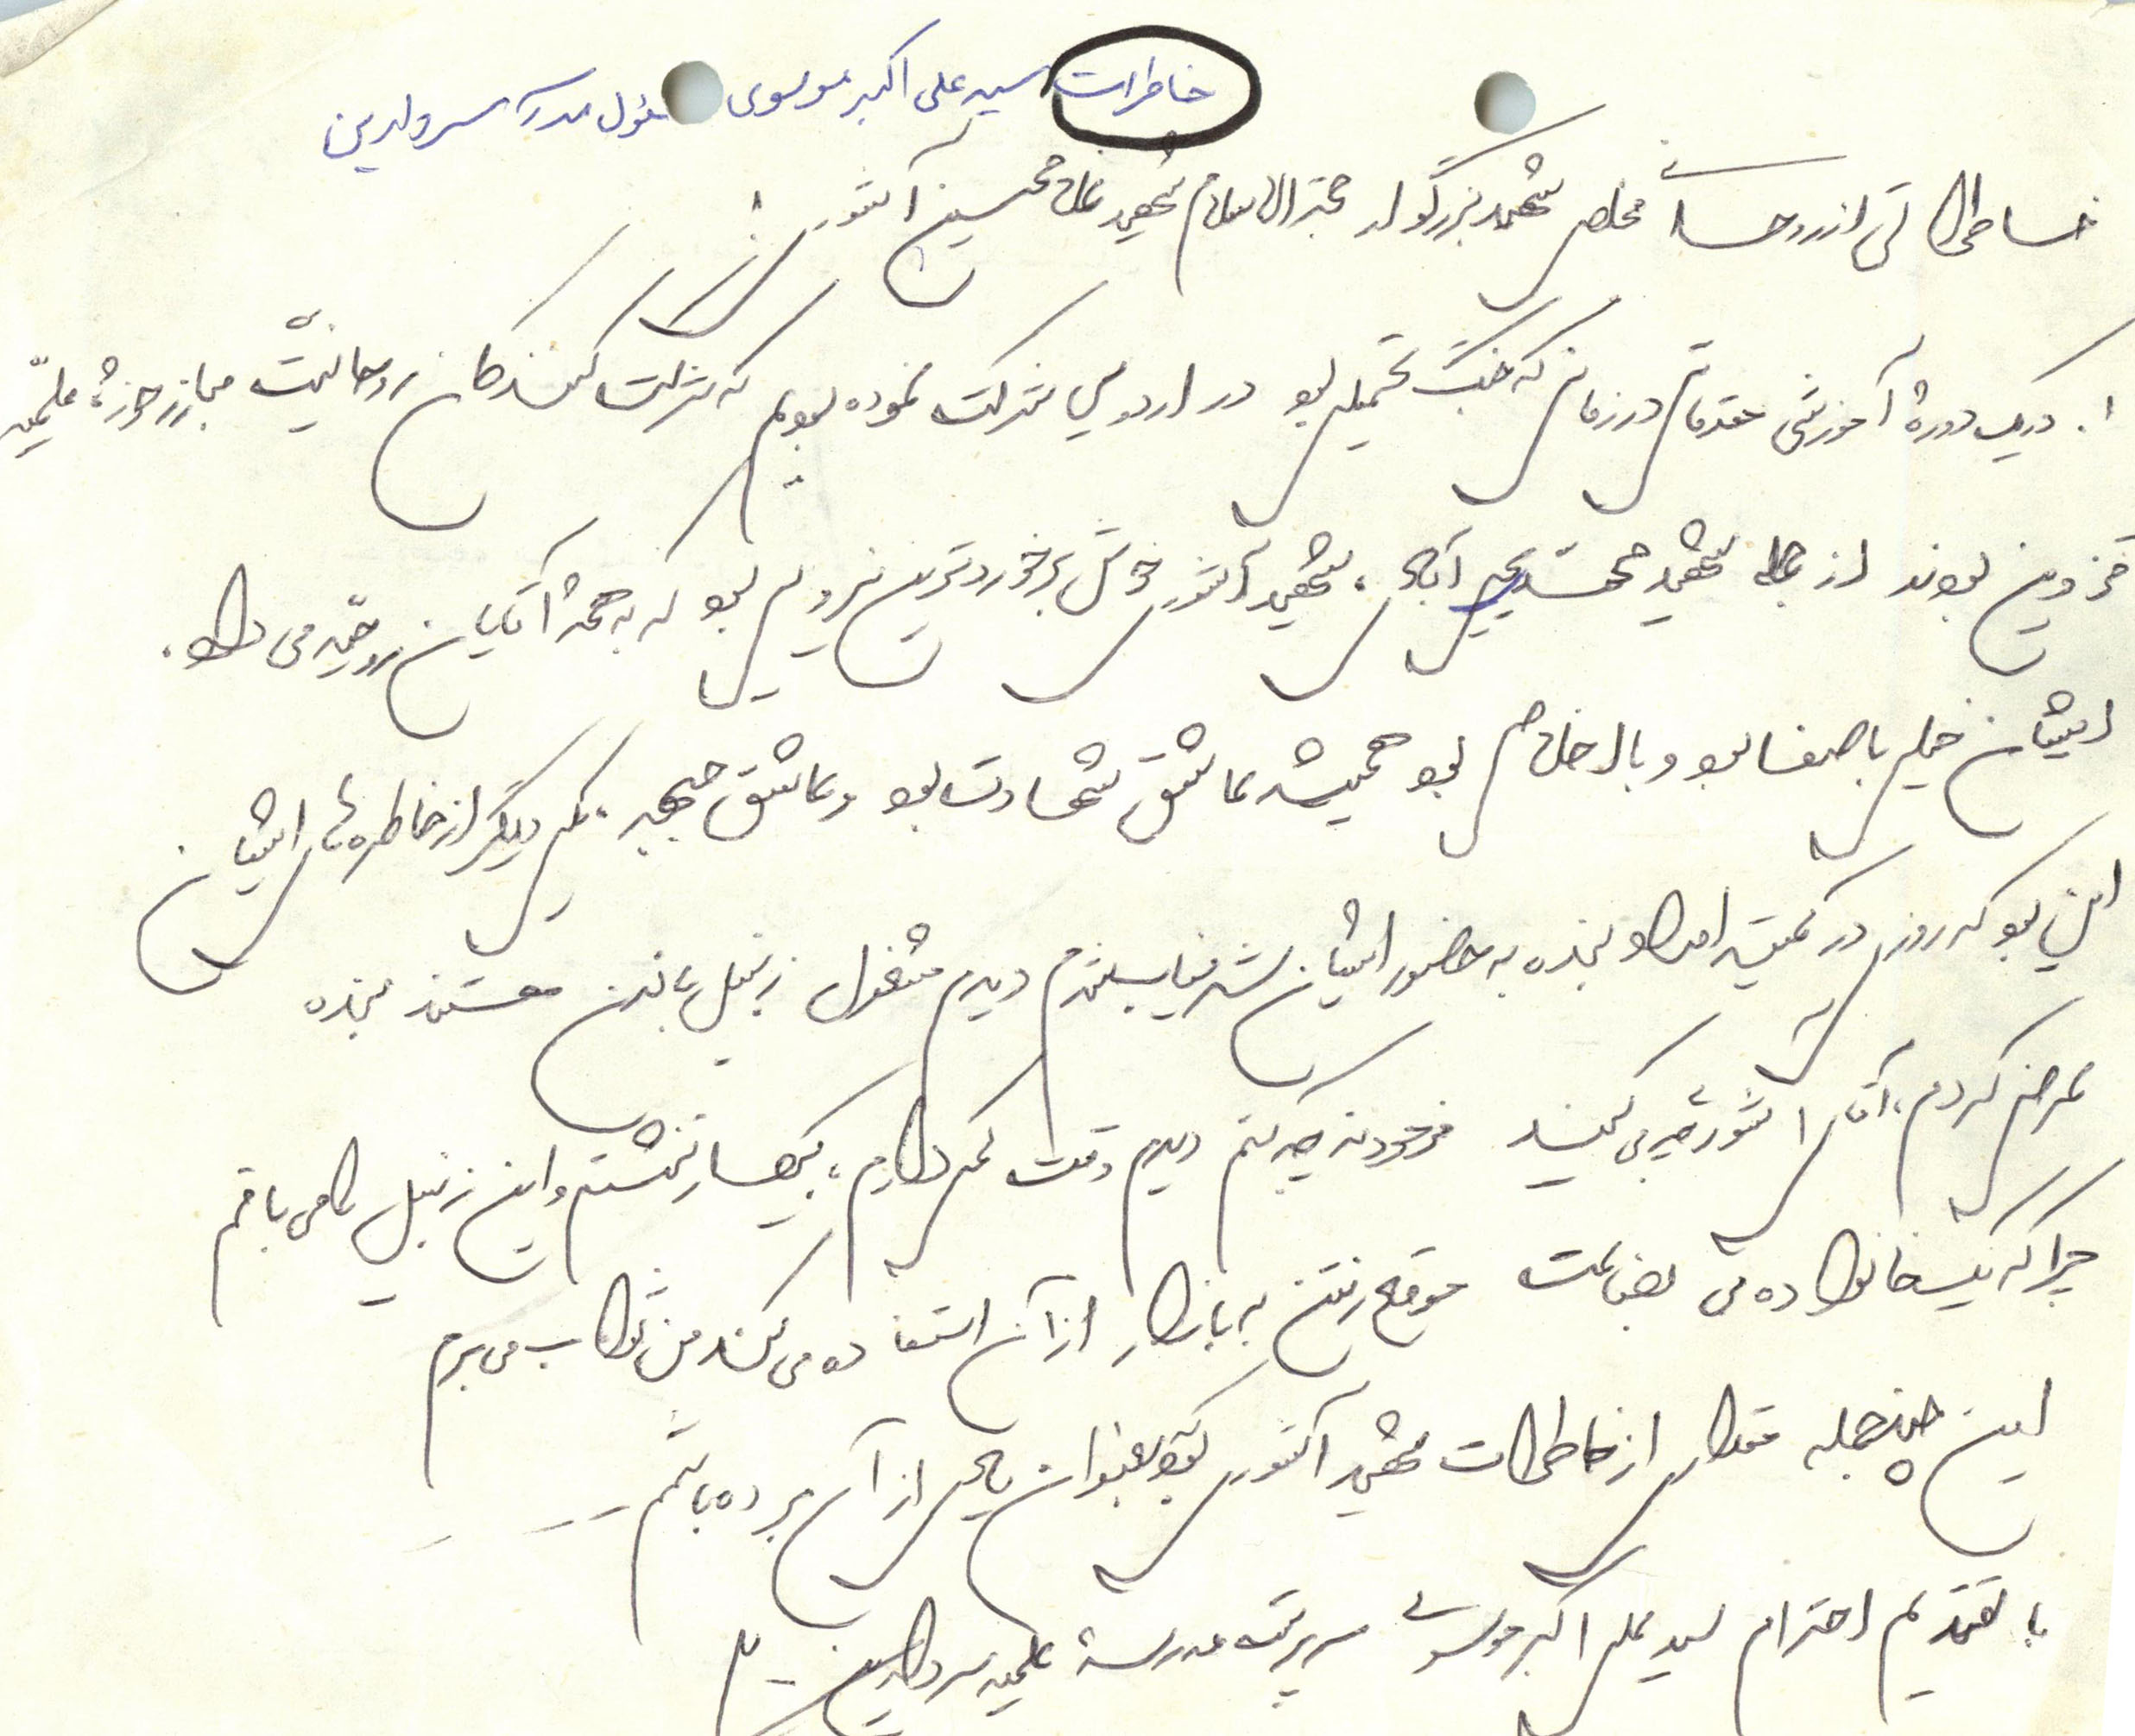 خاطرات سید علی اکبر موسوی مسئول مدرسه سرداریـن
خاطراتی از روحانی مخلص شهید بزرگوار حجة الاسلام شهید غلامحسین آشوری
۱. در یک دورهٔ آموزشی مقدماتی در زمانی که جنگ تحمیلی بود در اردویی شرکت نموده بودیم که شرکت کنندگان روحانیّت مبارز حوزهٔ علمیّه
قزوین بودند از جمله شهید محمّد یحیی آبادی، شهید آشوری خوش برخوردترین نیرویی بود که به همهٔ آقایان روحیّه می داد.
ایشان خیلی با صفا بود و با اخلاص بود همیشه عاشق شهادت بود و عاشق جبهه، یکی دیگر از خاطره های ایشان
این بود که روزی در کمیته امداد بنده به حضور ایشان شرفیاب شدم دیدم مشغول زنبیل بافتن هستند بنده
عرض کردم، آقای آشوری چه می کنید فرمودند چه کنم دیدم وقت کمی دارم، بیکار نشستم و این زنبیل را می بافم
چرا که یک خانواده بی بضاعت موقع رفتن به بازار از آن استفاده می کند من ثواب می برم
این چند جمله مقداری از خاطرات شهید آشوری بود بعنوان یادی از آن برده باشم
با تقدیم احترام سید علی اکبر موسوی سرپرست مدرسهٔ علمیه سرداریـن